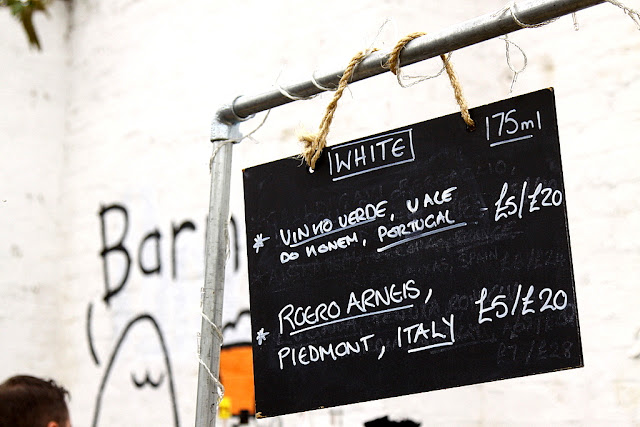 WHITE 175ml
* VINHO VERDE, VALE - £5/£20
DO HOMEM, PORTUGAL
* ROERO ARNEIS, £5/£20
PIEDMONT, ITALY
Barn